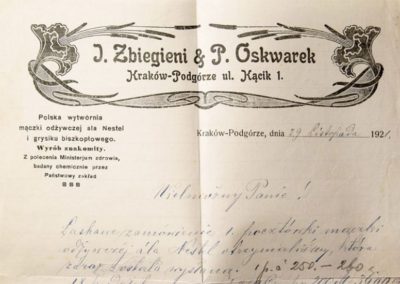 J. Zbiegieni & P. Oskwarek
Kraków-Podgórze ul. Kącik 1.
Polska wytwórnia
mączki odżywczej ala Nestel
i grysiku biszkoptowego.
Wyrób znakomity.
Z polecenia Ministerjum zdrowia,
badany chemicznie przez
Państwowy zakład
Kraków-Podgórze, dnia 29 listopada 192
Wielmożny Panie!
Łaskawe zamówienie 1 pocztówki mączki
odżywczej ála Nestl otrzymaliśmy, która
zaraz została wysłana. 1 p. á 250.-